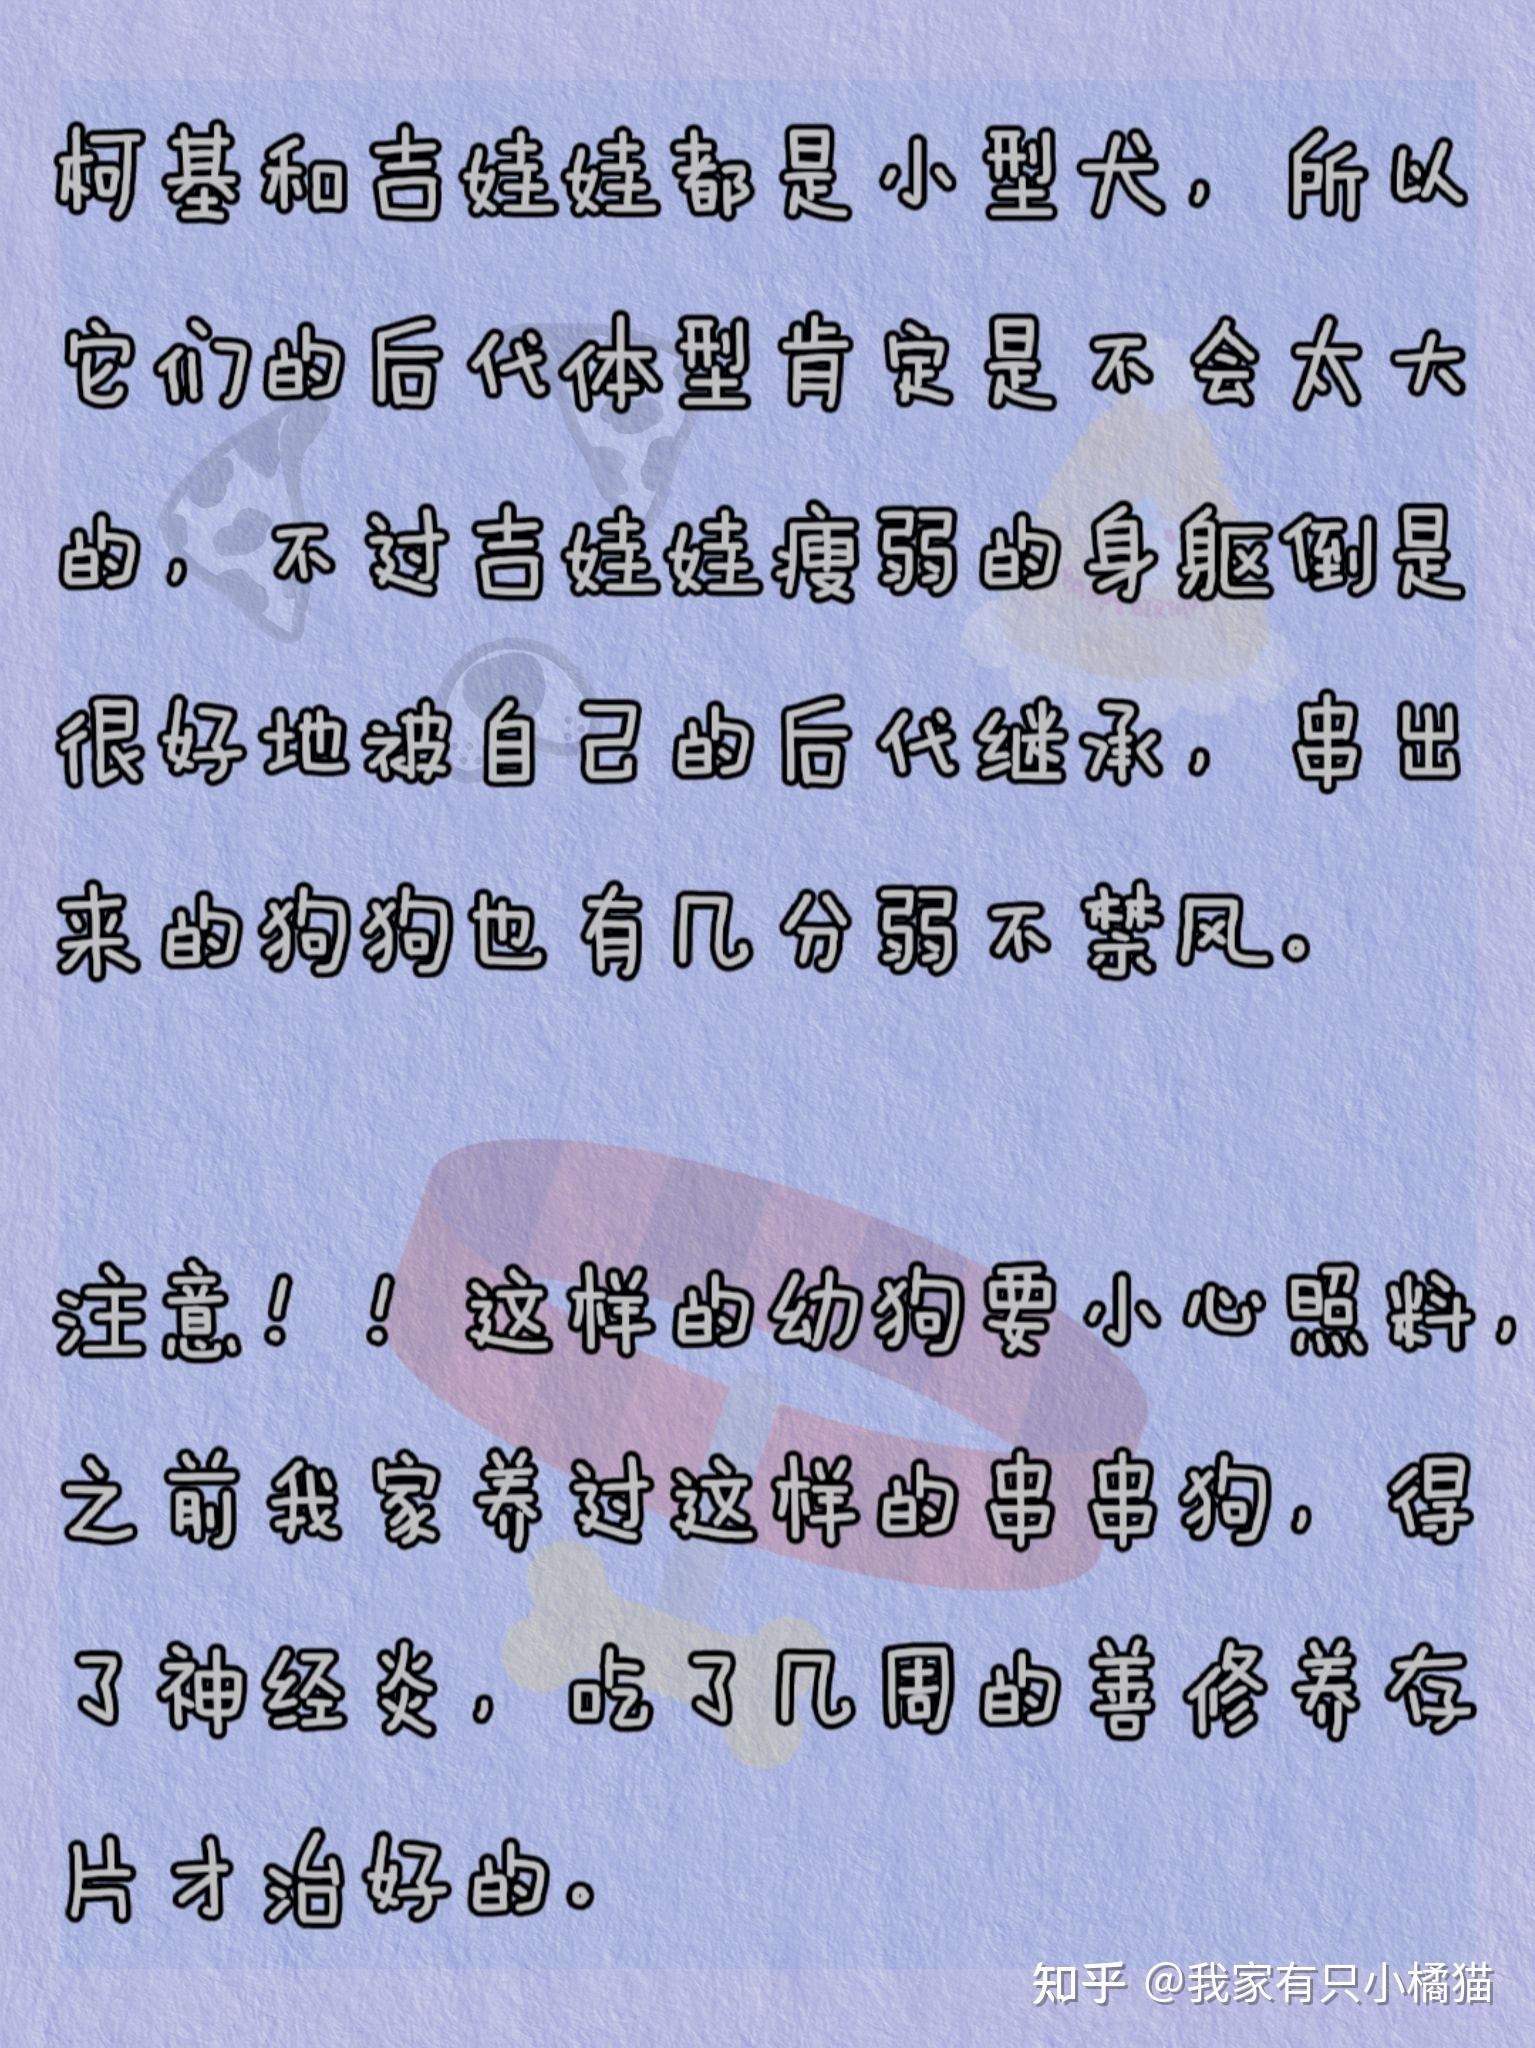 柯基和吉娃娃都是小型犬，所以
它们的后代体型肯定是不会太大
的，不过吉娃娃瘦弱的身躯倒是
很好地被自己的后代继承，串出
来的狗狗也有几分弱不禁风。
注意！！这样的幼狗要小心照料，
之前我家养过这样的串串狗，得
了神经炎，吃了几周的善修养存
片才治好的。
知乎 @我家有只小橘猫